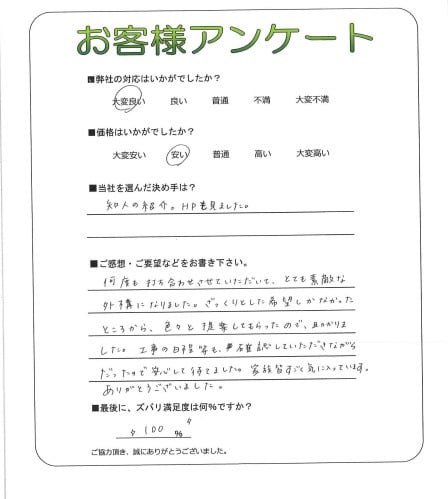 お客様アンケート
■弊社の対応はいかがでしたか？
大変良い 良い 普通 不満 大変不満
■価格はいかがでしたか？
大変安い 安い 普通 高い 大変高い
■当社を選んだ決め手は？
知人の紹介。HPも見ました。
■ご感想・ご要望などをお書き下さい。
何度も打ち合わせさせていただいて、とても素敵な
外構になりました。ざっくりとした希望しかなかった
ところから、色々と提案してもらったので、助かりま
した。工事の日程等も、確認していただきながら
だったので安心して待てました。家族皆すごく気に入っています。
ありがとうございました。
■最後に、ズバリ満足度は何%ですか？
100 %
ご協力頂き、誠にありがとうございました。